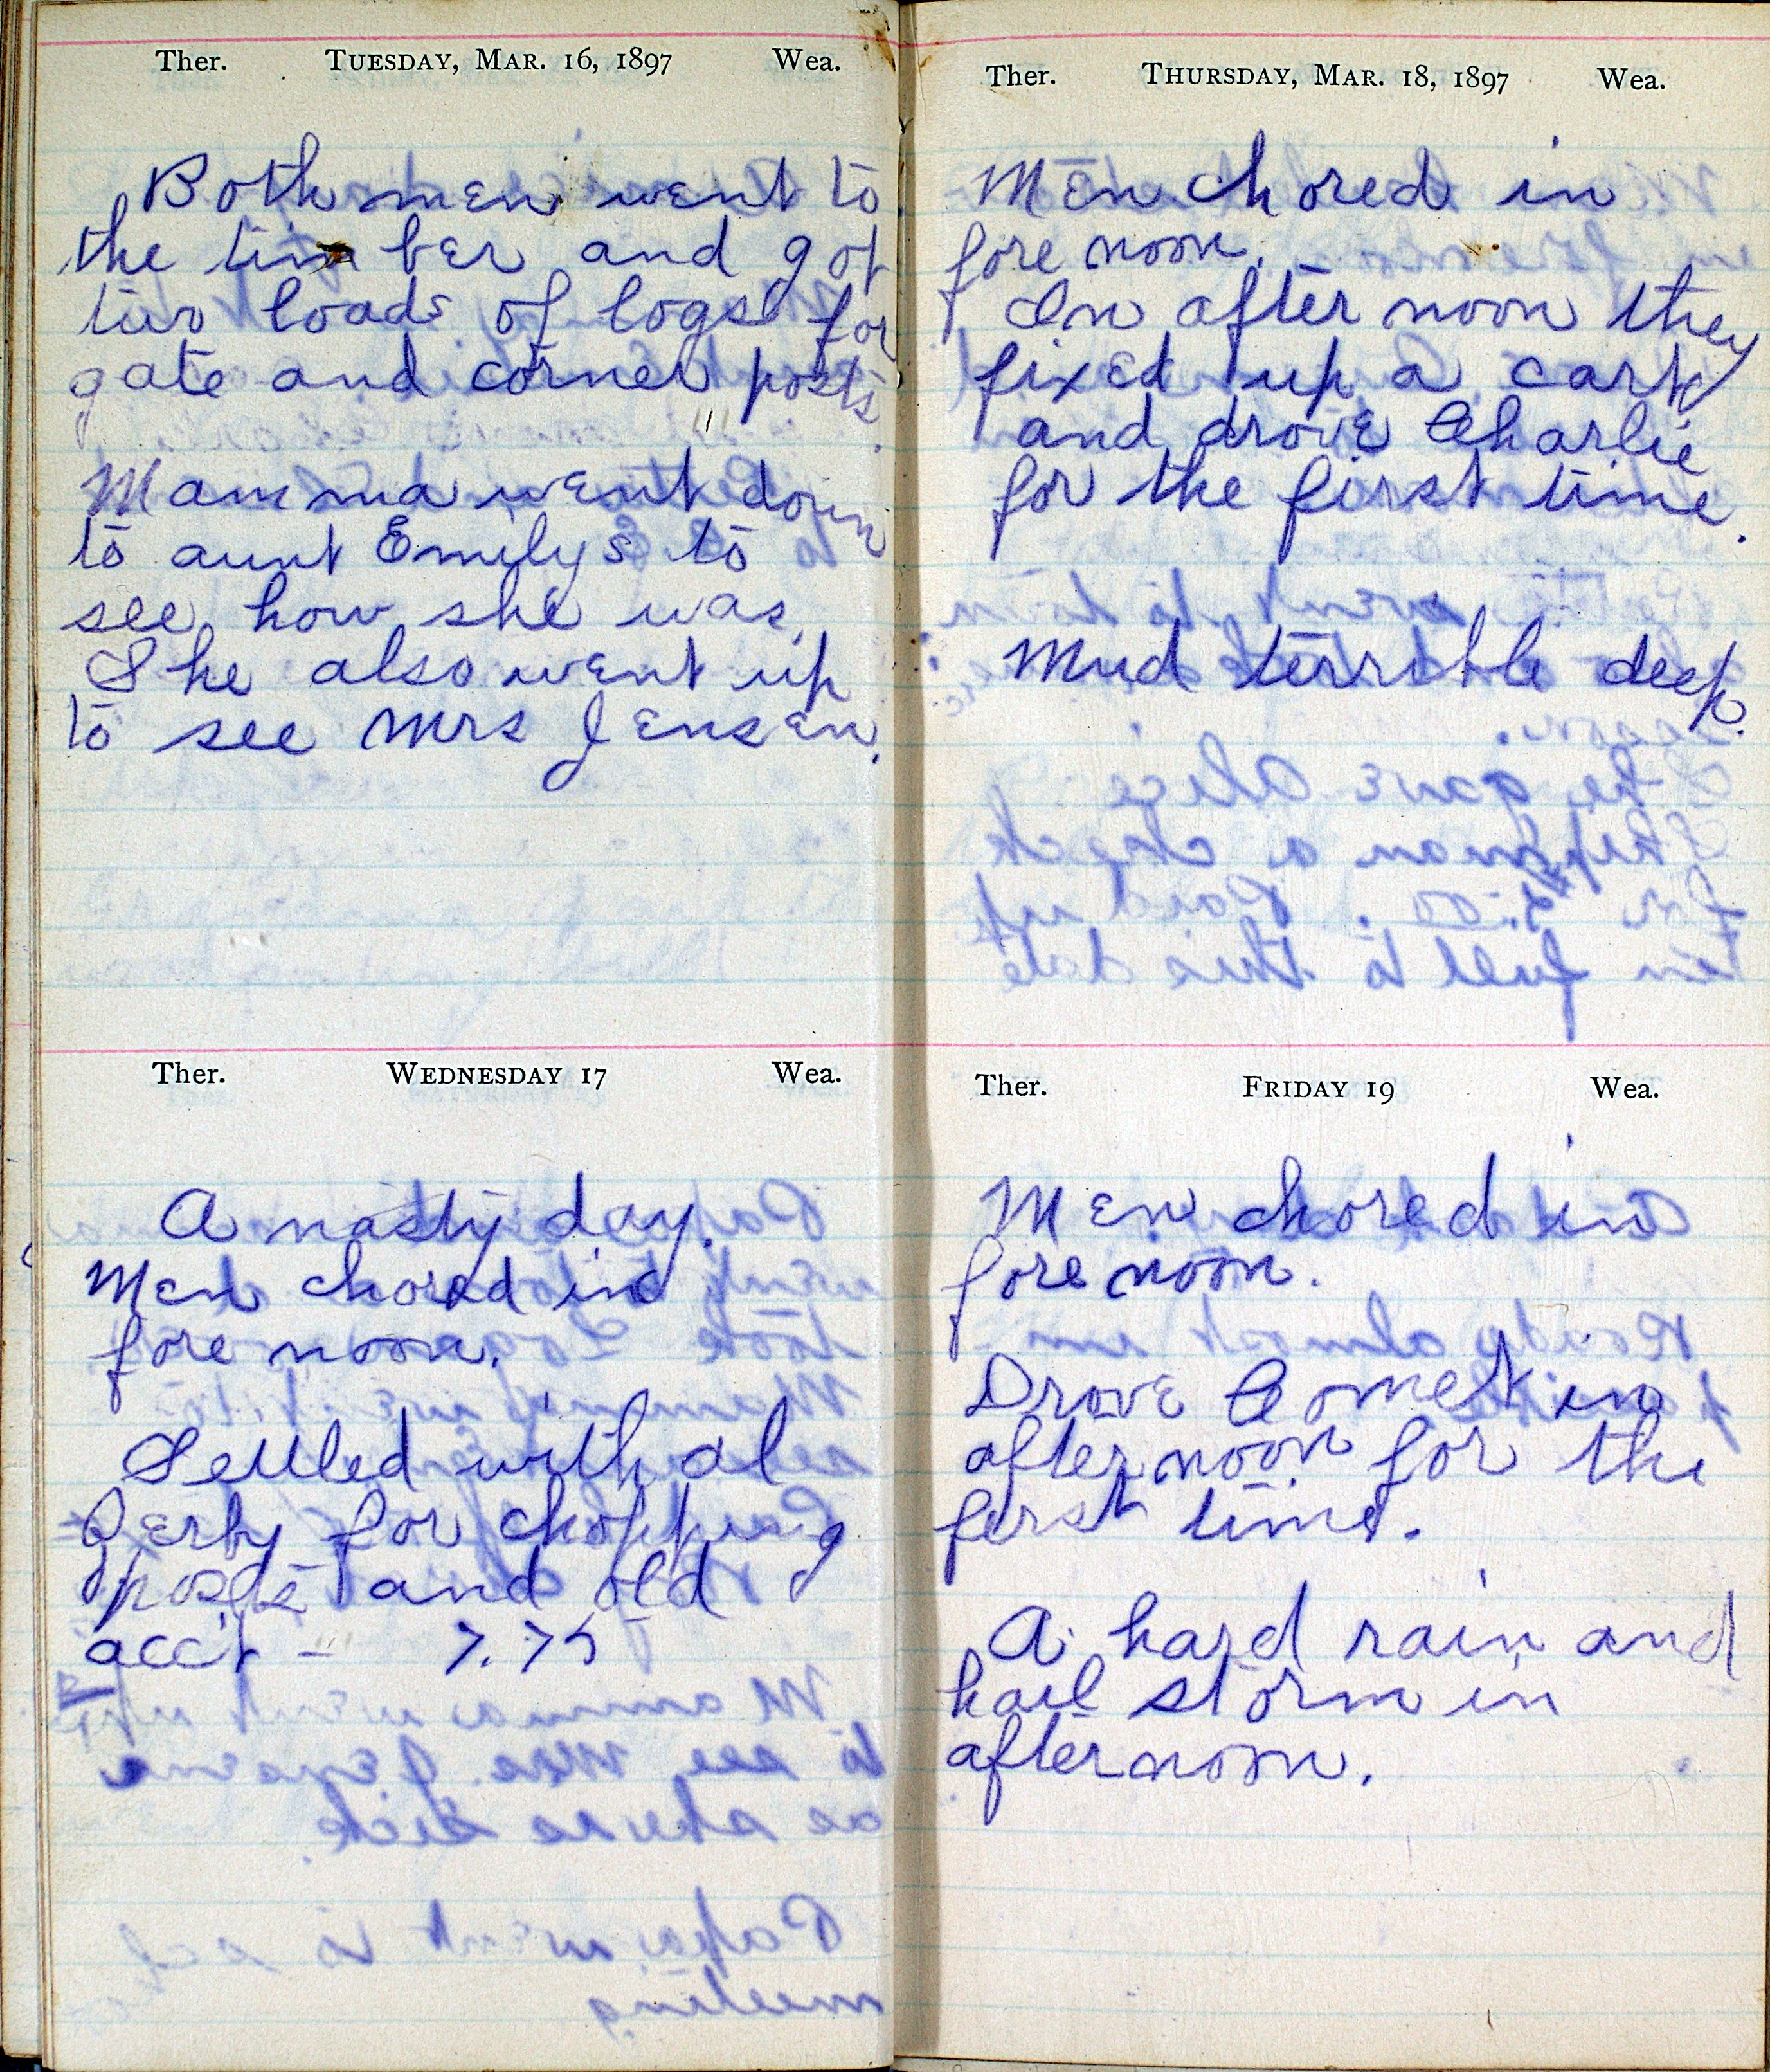 Ther. TUESDAY, MAR. 16, 1897 Wea.
Both men went to
the timber and got
two loads of logs for
gate and corner posts.
Mamma went down
to aunt Emilys to
see how she was.
She also went up
to see Mrs Jensen.
Ther. WEDNESDAY 17 Wea.
A nasty day.
Men chored in
fore noon.
Settled with al
for chopping
posts and old
acc't – 7.75
Ther. THURSDAY, MAR. 18, 1897 Wea.
Men chored in
fore noon.
In after noon they
fixed up a cart
and drove Charlie
for the first time.
Mud terrible deep.
Ther. FRIDAY 19 Wea.
Men chored in
fore noon.
Drove Comet in
afternoon for the
first time.
A hard rain and
hail storm in
afternoon.